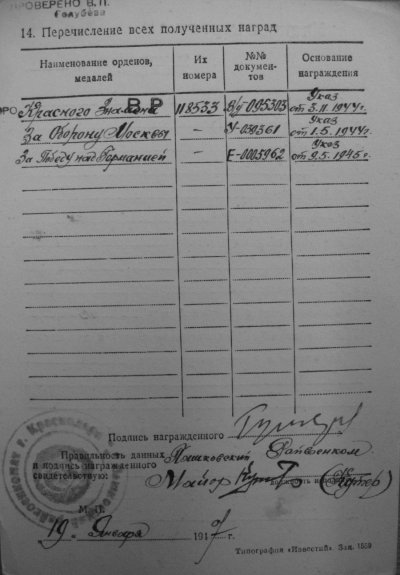 ПРОВЕРЕНО В.П.
Голубева
14. Перечисление всех полученных наград
Наименование орденов, медалей
Их номера
№№ докумен-тов
Основание награждения
Красного Знамени В Р 118533 095303 Указ от 3.11.1944г.
За Оборону Москвы — У-039361 Указ от 1.5.1944г.
За Победу над Германией — Е-0005962 Указ от 9.5.1945г.
Подпись награжденного
Правильность данных
и подпись награжденного
свидетельствую:
Пашковский Райвоенком
Майор
М. П.
19. Января 1947 г.
Типография «Известий». Зак. 1559